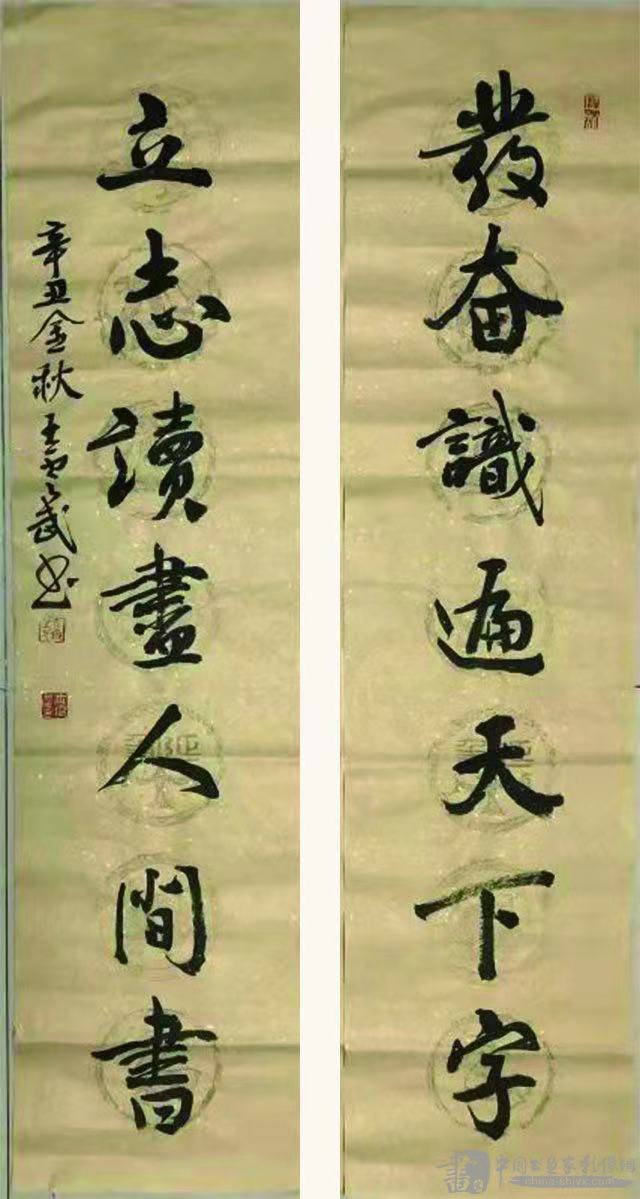 發奋識遍天下字
立志讀盡人間書
辛丑金秋王雲武书
中国书画家影像网
china-shyx.com